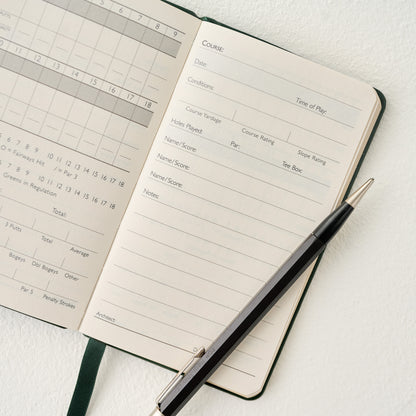 1 2 3 4 5 6 7 8 9
10 11 12 13 14 15 16 17 18
7 8 9 10 11 12 13 14 15 16 17 18
O = Fairways Hit / = Par 3
7 8 9 10 11 12 13 14 15 16 17 18
Greens in Regulation
Total:
3 Putts Total Average
Bogeys Dbl Bogeys Other
Par 5 Penalty Strokes
Course:
Date:
Conditions: Time of Play:
Course Yardage Course Rating Slope Rating
Holes Played: Par: Tee Box:
Name/Score:
Name/Score:
Name/Score:
Notes:
Architect: